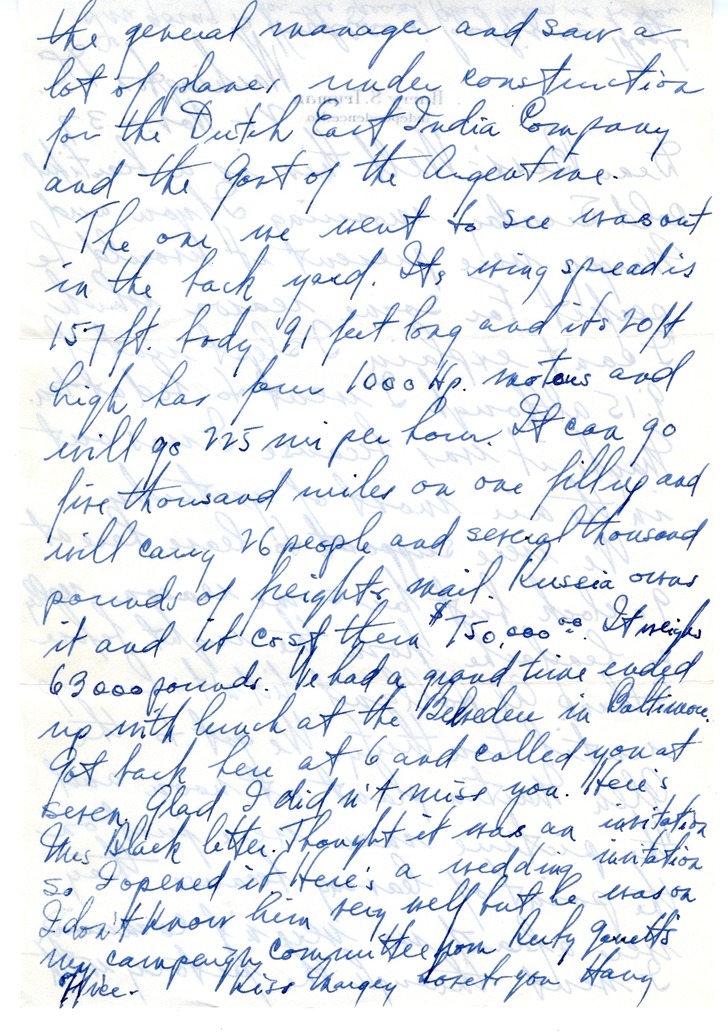 the general manager and saw a
lot of planes under construction
for the Dutch East India Company
and the Govt of the Argentine.
The one we went to see was out
in the back yard. Its wing spread is
157 ft. body 91 feet long and its 20 ft
high has four 1000 Hp. motors and
will go 225 mi per hour. It can go
five thousand miles on one filling and
will carry 26 people and several thousand
pounds of freight & mail. Russia owns
it and it cost them $750,000.00. It weighs
63000 pounds. We had a grand time ended
up with lunch at the Belvedere in Baltimore.
Got back here at 6 and called you at
seven. Glad I didn't miss you. Here's
Mrs Black letter. Thought it was an invitation
so I opened it Here's a wedding invitation
I don't know him very well but he was on
my campaign committee from Ruby
office. Kiss Margey love to you Harry
Harry S. Truman
Independence, Mo.